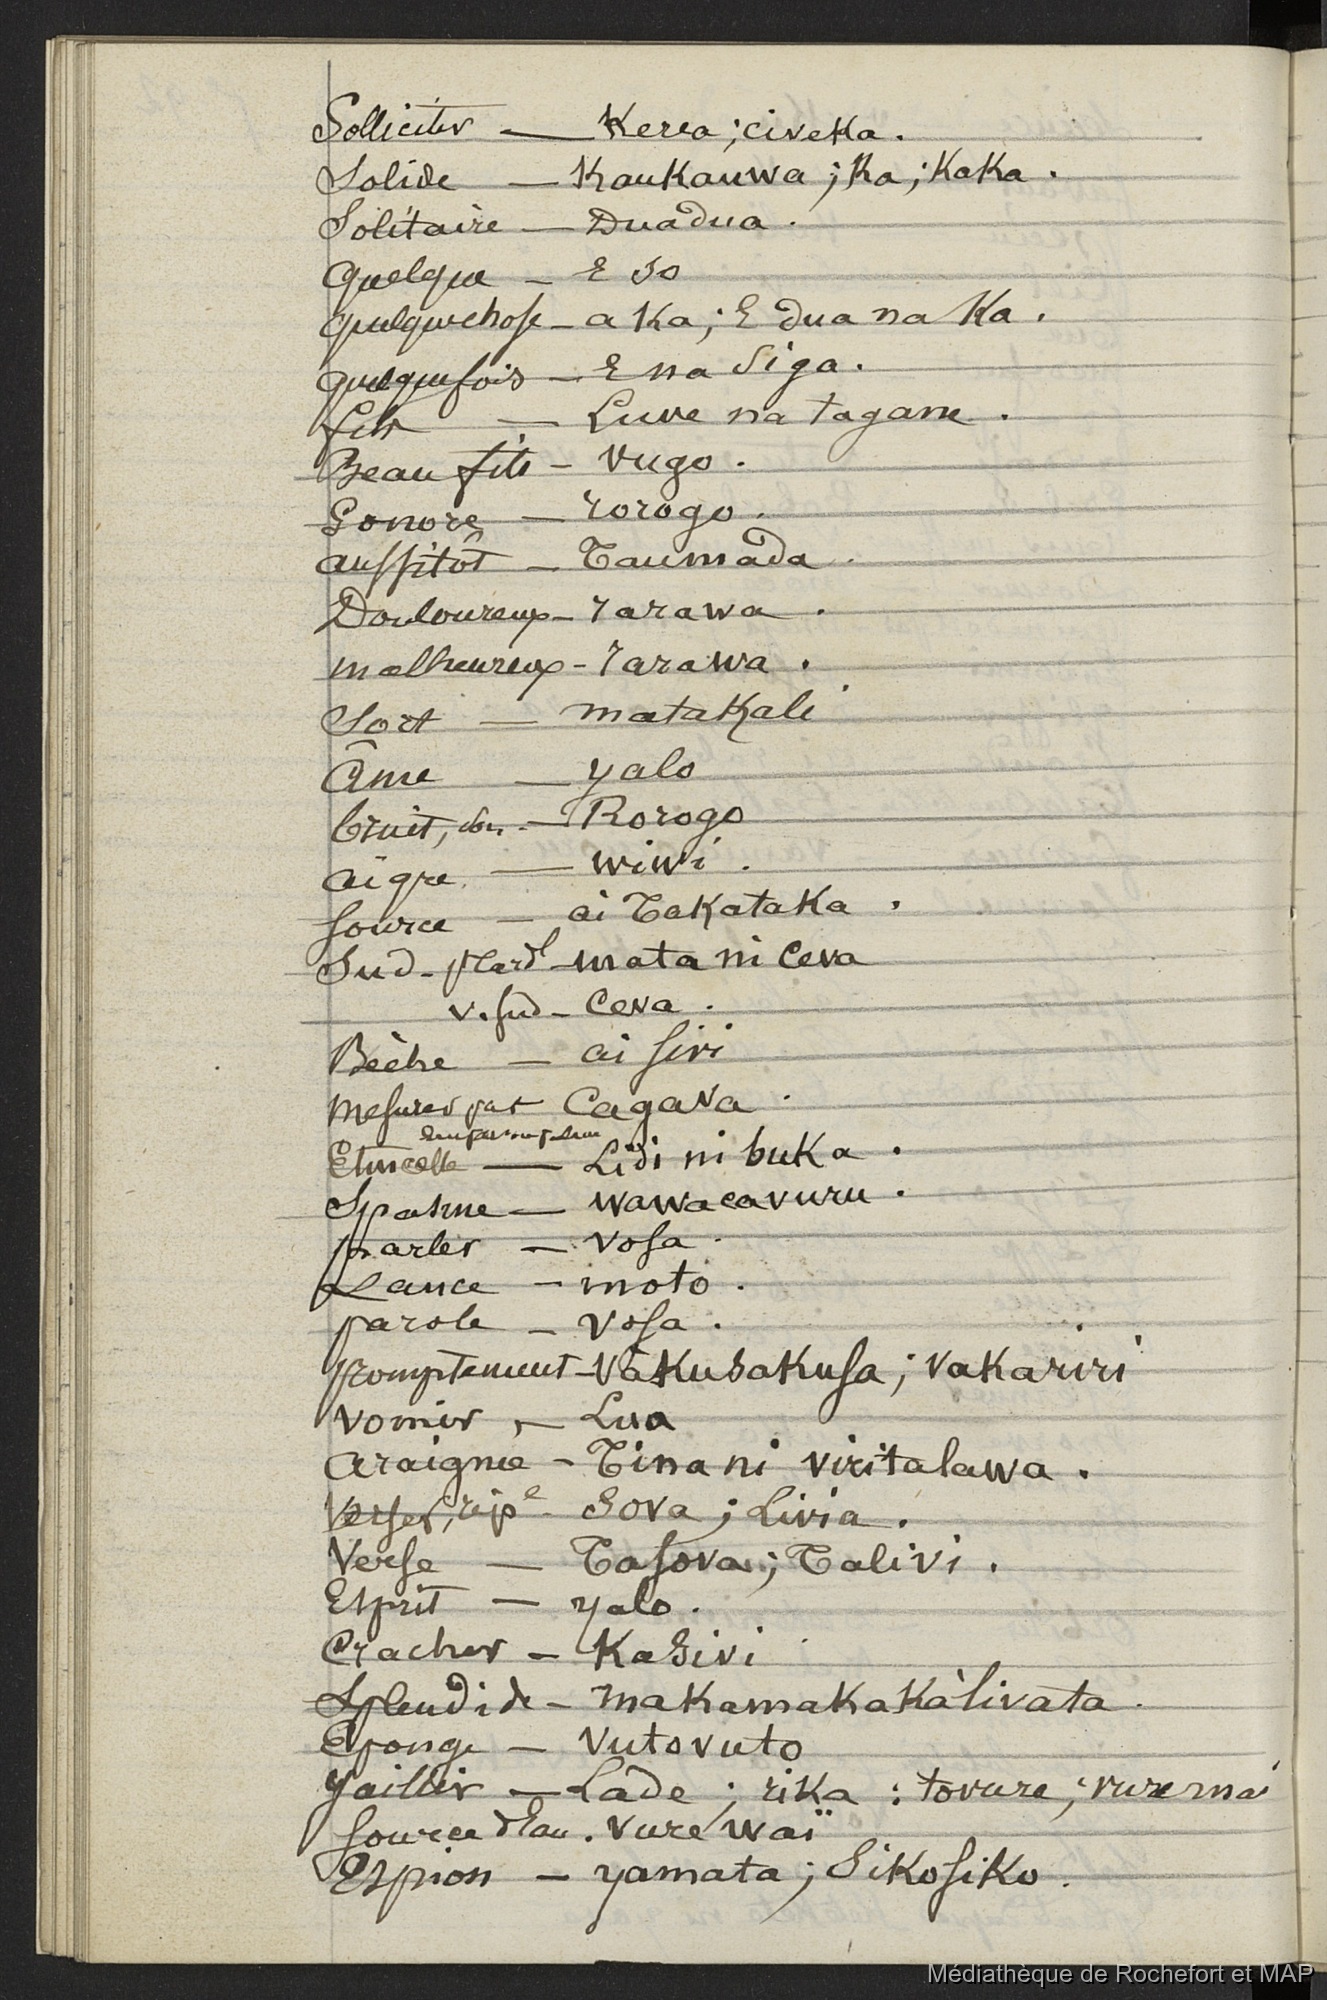 Solliciter — Kerea ; civeka.
Solide — Kaukauwa ; Ka ; Kaka.
Solitaire — Duadua.
Quelque — E so
quelquechose — a Ka ; E dua na Ka.
quelquefois — E na siga.
fils — Luve na tagane.
Beau fils — Vugo.
Sonore — rorogo.
aussitôt — Taumada.
Douloureux — rarawa.
malheureux — rarawa.
Sort — matakali
Âme — yalo
bruit, son. — Rorogo
aigre — wiwi.
source — ai Takataka.
Sud — mata ni ceva
v. sud — Ceva.
Bèche — ai sivi
Mesurer par Cagava.
Etincelle — Lidi ni buka.
Spasme — wawacavuru.
parler — vosa.
Lance — moto.
parole — vosa.
promptement — Vakusakusa ; vakariri
vomir — Lua
araignée — Tina ni viritalawa.
Verser, rép^e — Sova ; Livia.
Verse — Tasova ; Talivi.
Esprit — yalo.
Cracher — Kasivi
Splendide — makamakakàlivata.
Eponge — Vutovuto
Jaillir — Lade ; rika : tovure ; vure mai
source d'Eau. vure waï
Espion — yamata ; Sikosiko.
Médiathèque de Rochefort et MAP